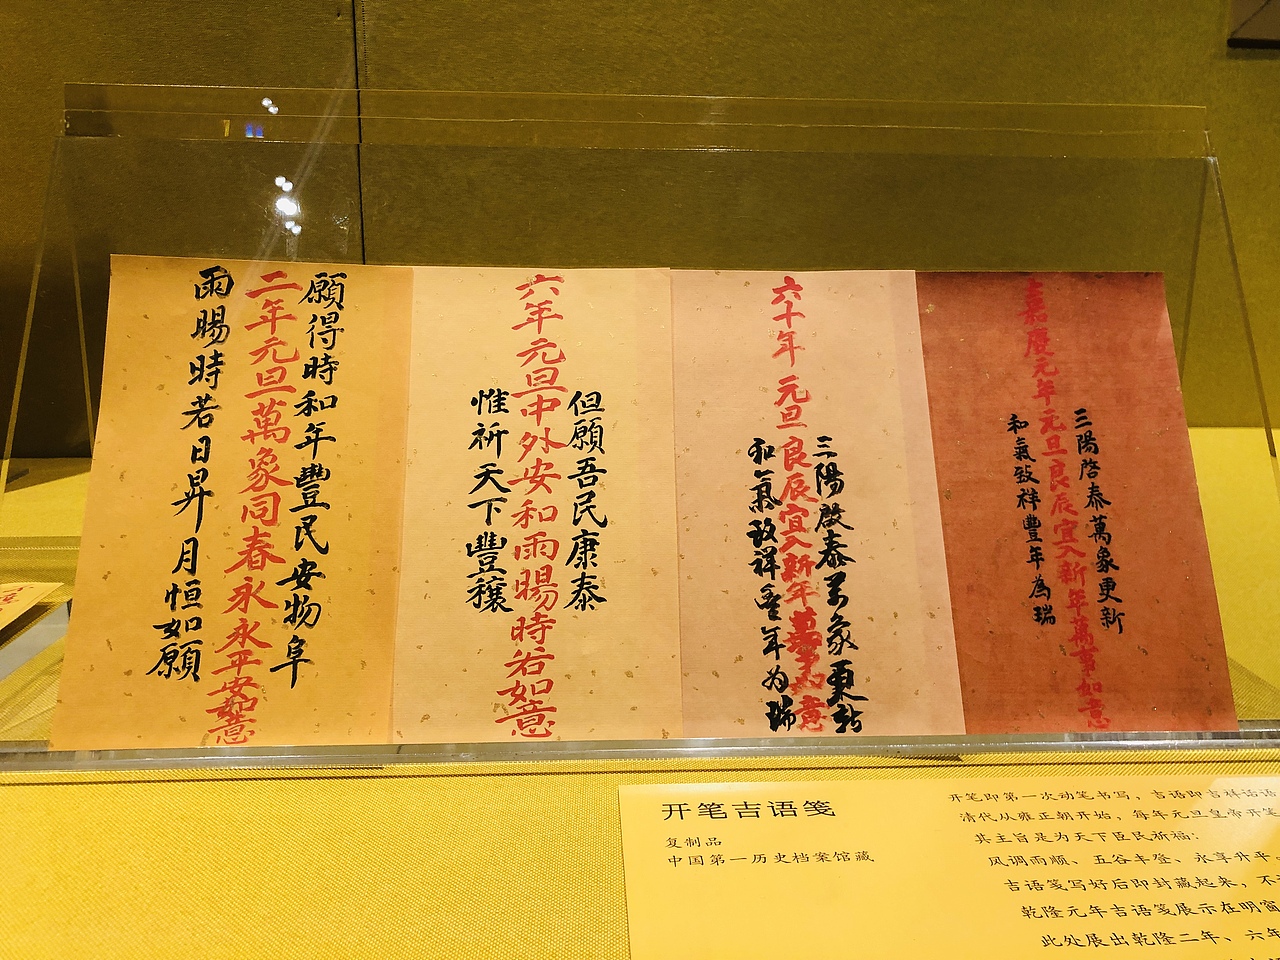 願得時和年豐民安物阜
二年元旦萬象同春永永平安如意
雨暘時若日昇月恒如願
但願吾民康泰
六年元旦中外安和雨暘時若如意
惟祈天下豐穰
三陽啟泰万象更新
六十年元旦良辰宜入新年萬事如意
和氣致祥豐年为瑞
三陽啓泰萬象更新
嘉慶元年元旦良辰宜入新年萬事如意
和氣致祥豐年為瑞
开笔吉语笺
复制品
中国第一历史档案馆藏
开笔即第一次动笔书写，吉语即吉祥话语
清代从雍正朝开始，每年元旦皇帝开笔
其主旨是为天下臣民祈福：
风调雨顺、五谷丰登、永享升平。
吉语笺写好后即封藏起来，不
乾隆元年吉语笺展示在明窗
此处展出乾隆二年、六年